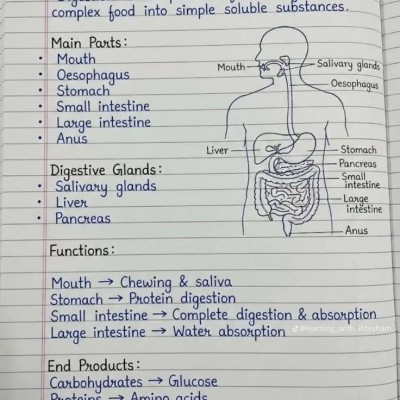 complex food into simple soluble substances.
Main Parts:
• Mouth
• Oesophagus
• Stomach
• Small intestine
• Large intestine
• Anus
Mouth
Salivary glands
Oesophagus
Liver
Stomach
Pancreas
Small intestine
Large intestine
Anus
Digestive Glands:
• Salivary glands
• Liver
• Pancreas
Functions:
Mouth → Chewing & saliva
Stomach → Protein digestion
Small intestine → Complete digestion & absorption
Large intestine → Water absorption
@learning_with_ihtesham
End Products:
Carbohydrates → Glucose
Proteins → Amino acids